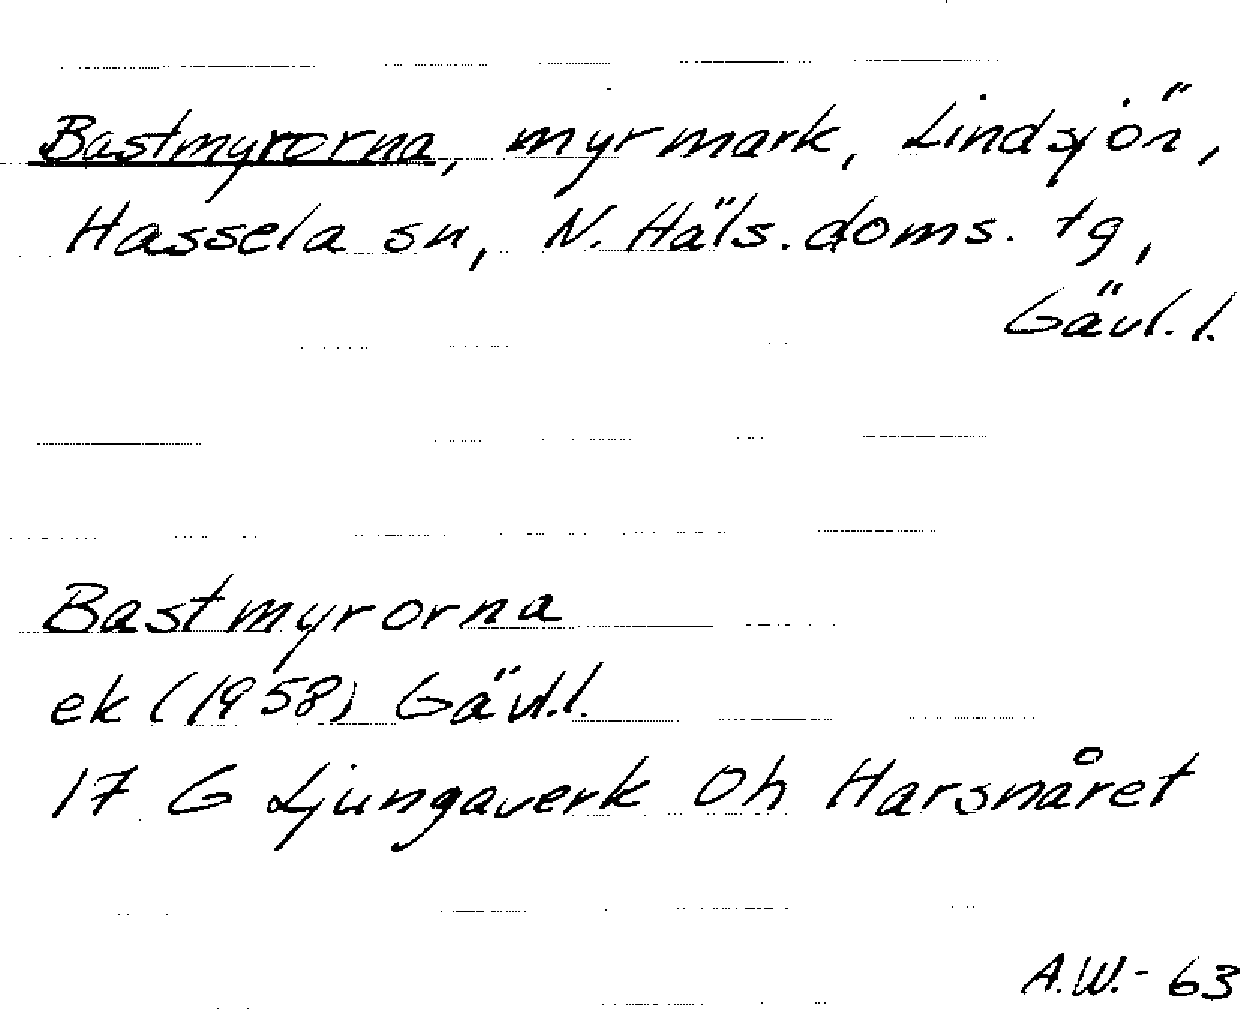 Bastmyrorna, myrmark, Lindsjön,
Hassela sn, N. Häls. doms. tg,
Gävl. l.
Bastmyrorna
ek (1958) Gävl.l.
17 G Ljungaverk Oh Harsnåret
A.W.- 63